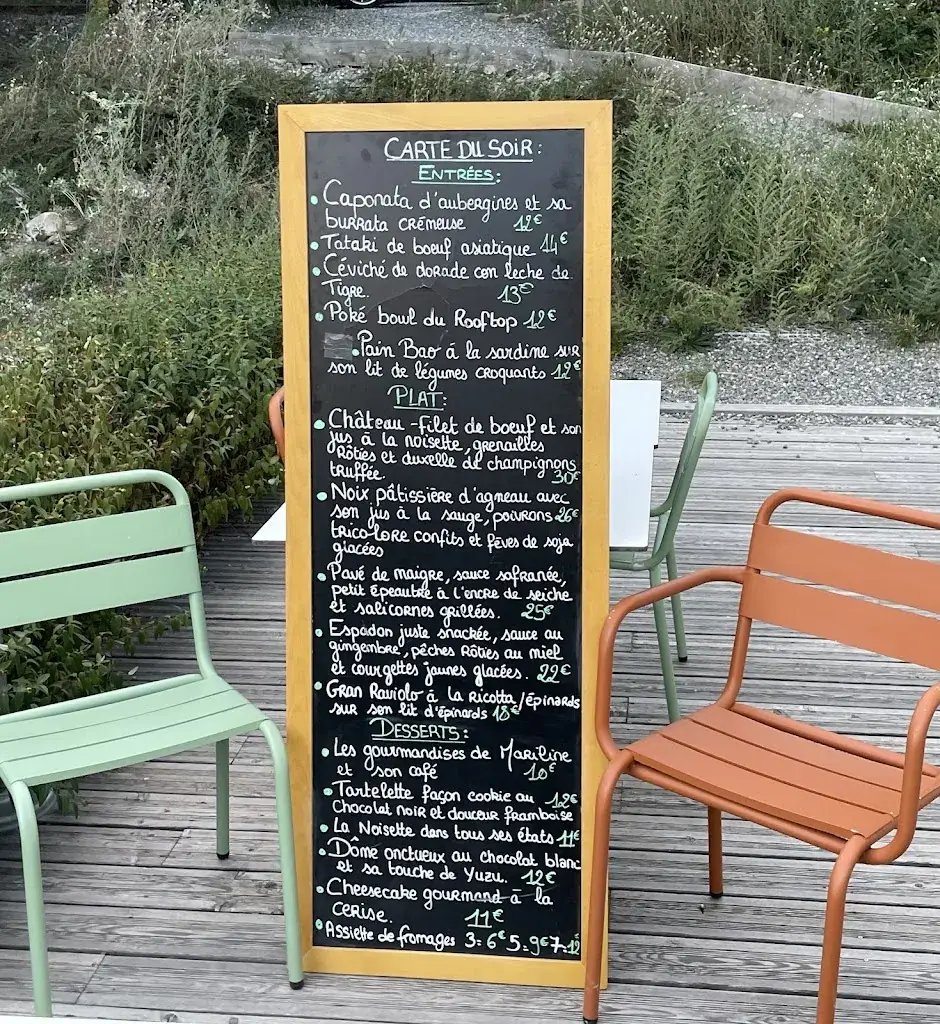 CARTE DU SOIR :
ENTRÉES :
• Caponata d'aubergines et sa
burrata crémeuse 12€
• Tataki de boeuf asiatique 14€
• Céviché de dorade con leche de
Tigre. 13€
• Poké bowl du Rooftop 12€
• Pain Bao à la sardine sur
son lit de légumes croquants 12€
PLAT :
• Château-filet de boeuf et son
jus à la noisette, grenailles
rôties et duxelle de champignons
truffée. 30€
• Noix pâtissière d'agneau avec
son jus à la sauge, poivrons 26€
tricolore confits et fèves de soja
glacées
• Pavé de maigre, sauce safranée,
petit épeautre à l'encre de seiche
et salicornes grillées. 25€
• Espadon juste snackée, sauce au
gingembre, pêches rôties au miel
et courgettes jaunes glacées. 22€
• Gran Raviolo à la ricotta/épinards
sur son lit d'épinards 18€
DESSERTS :
• Les gourmandises de Mariline
et son café 10€
• Tartelette façon cookie au 12€
chocolat noir et douceur framboise
• La Noisette dans tous ses états 11€
• Dôme onctueux au chocolat blanc
et sa touche de Yuzu. 12€
• Cheesecake gourmand à la
cerise. 11€
• Assiette de fromages 3=6€ 5=9€ 7=12